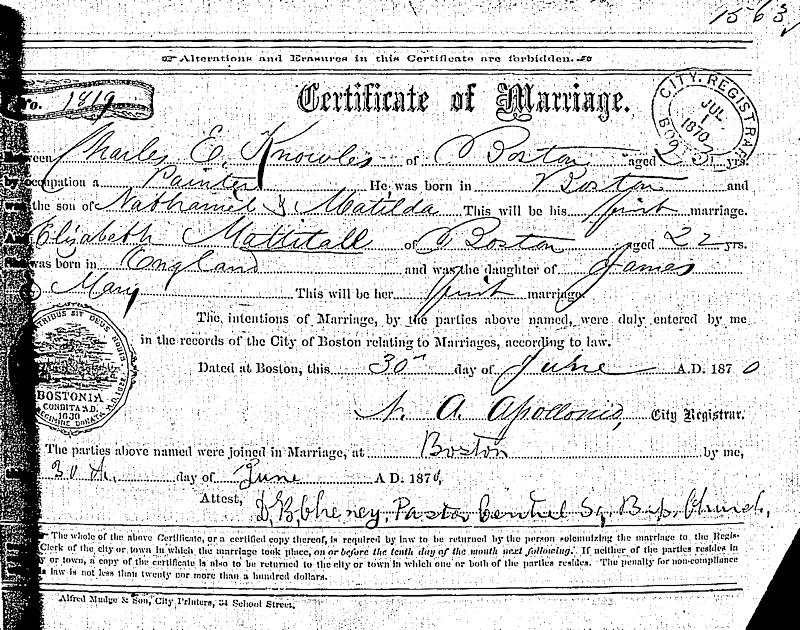 1563
☞ Alterations and Erasures in this Certificate are forbidden. ☜
No. 1819
Certificate of Marriage.
CITY REGISTRAR
JUL
1
1870
BOSTON
Between Charles E. Knowles of Boston aged yrs.
by occupation a Painter He was born in Boston and
was the son of Nathaniel & Matilda This will be his first marriage.
And Elizabeth Mattitall of Boston aged 22 yrs.
She was born in England and was the daughter of James
& Mary This will be her first marriage.
The intentions of Marriage, by the parties above named, were duly entered by me
in the records of the City of Boston relating to Marriages, according to law.
Dated at Boston, this 30 day of June A.D. 1870
N. A. Apollonio, City Registrar.
BOSTONIA
CONDITA A.D.
1630
The parties above named were joined in Marriage, at Boston by me,
30th. day of June A.D. 1870,
Attest, D. B. Cheney, Pastor Central Sq. Bap. Church,
The whole of the above Certificate, or a certified copy thereof, is required by law to be returned by the person solemnizing the marriage to the Regis-
Clerk of the city or town in which the marriage took place, on or before the tenth day of the month next following. If neither of the parties resides in
y or town, a copy of the certificate is also to be returned to the city or town in which one or both of the parties resides. The penalty for non-compliance
is law is not less than twenty nor more than a hundred dollars.
Alfred Mudge & Son, City Printers, 34 School Street.